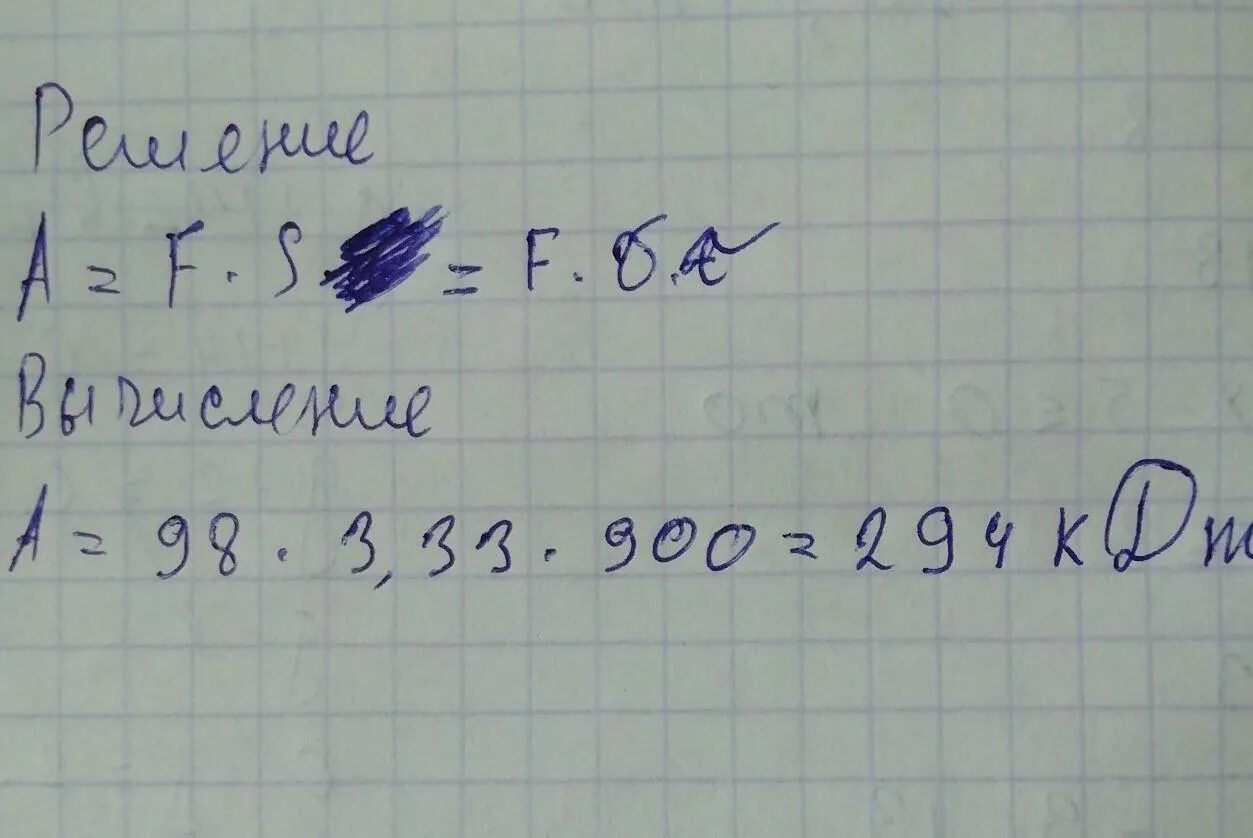 Решение
A = F · S = F · υ · t
Вычисление
A = 98 · 3,33 · 900 = 294 кДж